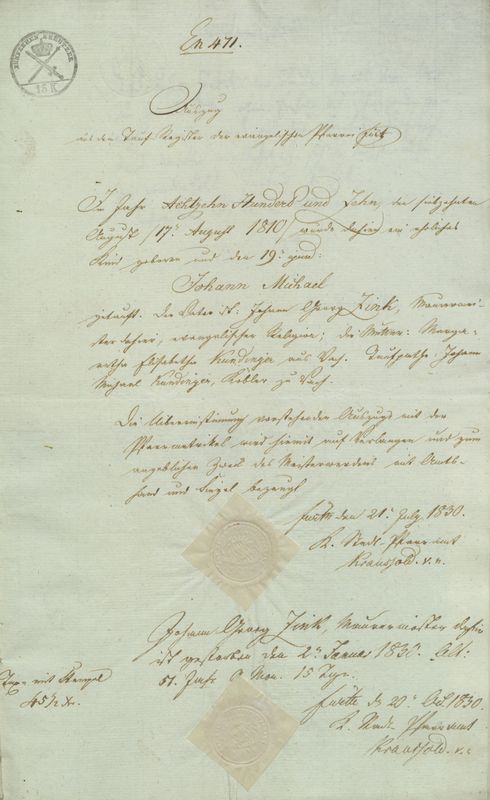 En 471.
15 K
Auszug
aus dem Tauf-Register der evangelischen Pfarrei Fürth
Im Jahr Achtzehn Hundert und Zehn, den siebzehnten
August /17. August 1810/ wurde dahier ein eheliches
Kind geboren und den 19. ejusd:
Johann Michael
getauft. Der Vater ist Johann Georg Zink, Maurermei-
ster dahier, evangelischer Religion; die Mutter: Marga-
retha Elisabetha Kundinger aus Vach. Taufpathe: Johann
Michael Kundinger, Köbler zu Vach.
Die Uebereinstimmung vorstehenden Auszugs mit der
Pfarrmatrikel wird hiemit auf Verlangen und zum
angeblichen Zweck des Meisterwerdens mit Amts-
hand und Siegel bezeugt
Fürth den 21. July 1830.
K. Stadt-Pfarramt
Kraussold. v. n.
Johann Georg Zink, Maurermeister dahier
ist gestorben den 2. Januar 1830. Alt:
51. Jahr Mon. 15 Tge.
Fürth d. 20. Oct. 1830.
K. Stadt-Pfarramt
Kraussold. v. n.
Taxe mit Stempel
45 1/2 Xr.